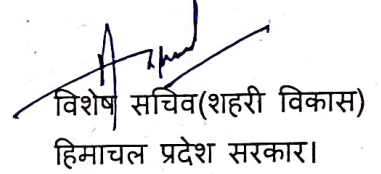 विशेष सचिव(शहरी विकास)
हिमाचल प्रदेश सरकार।